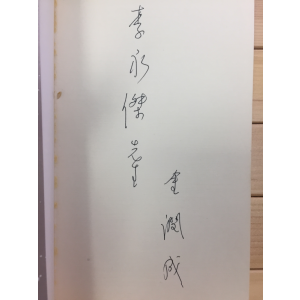 李永傑先生
金潤成